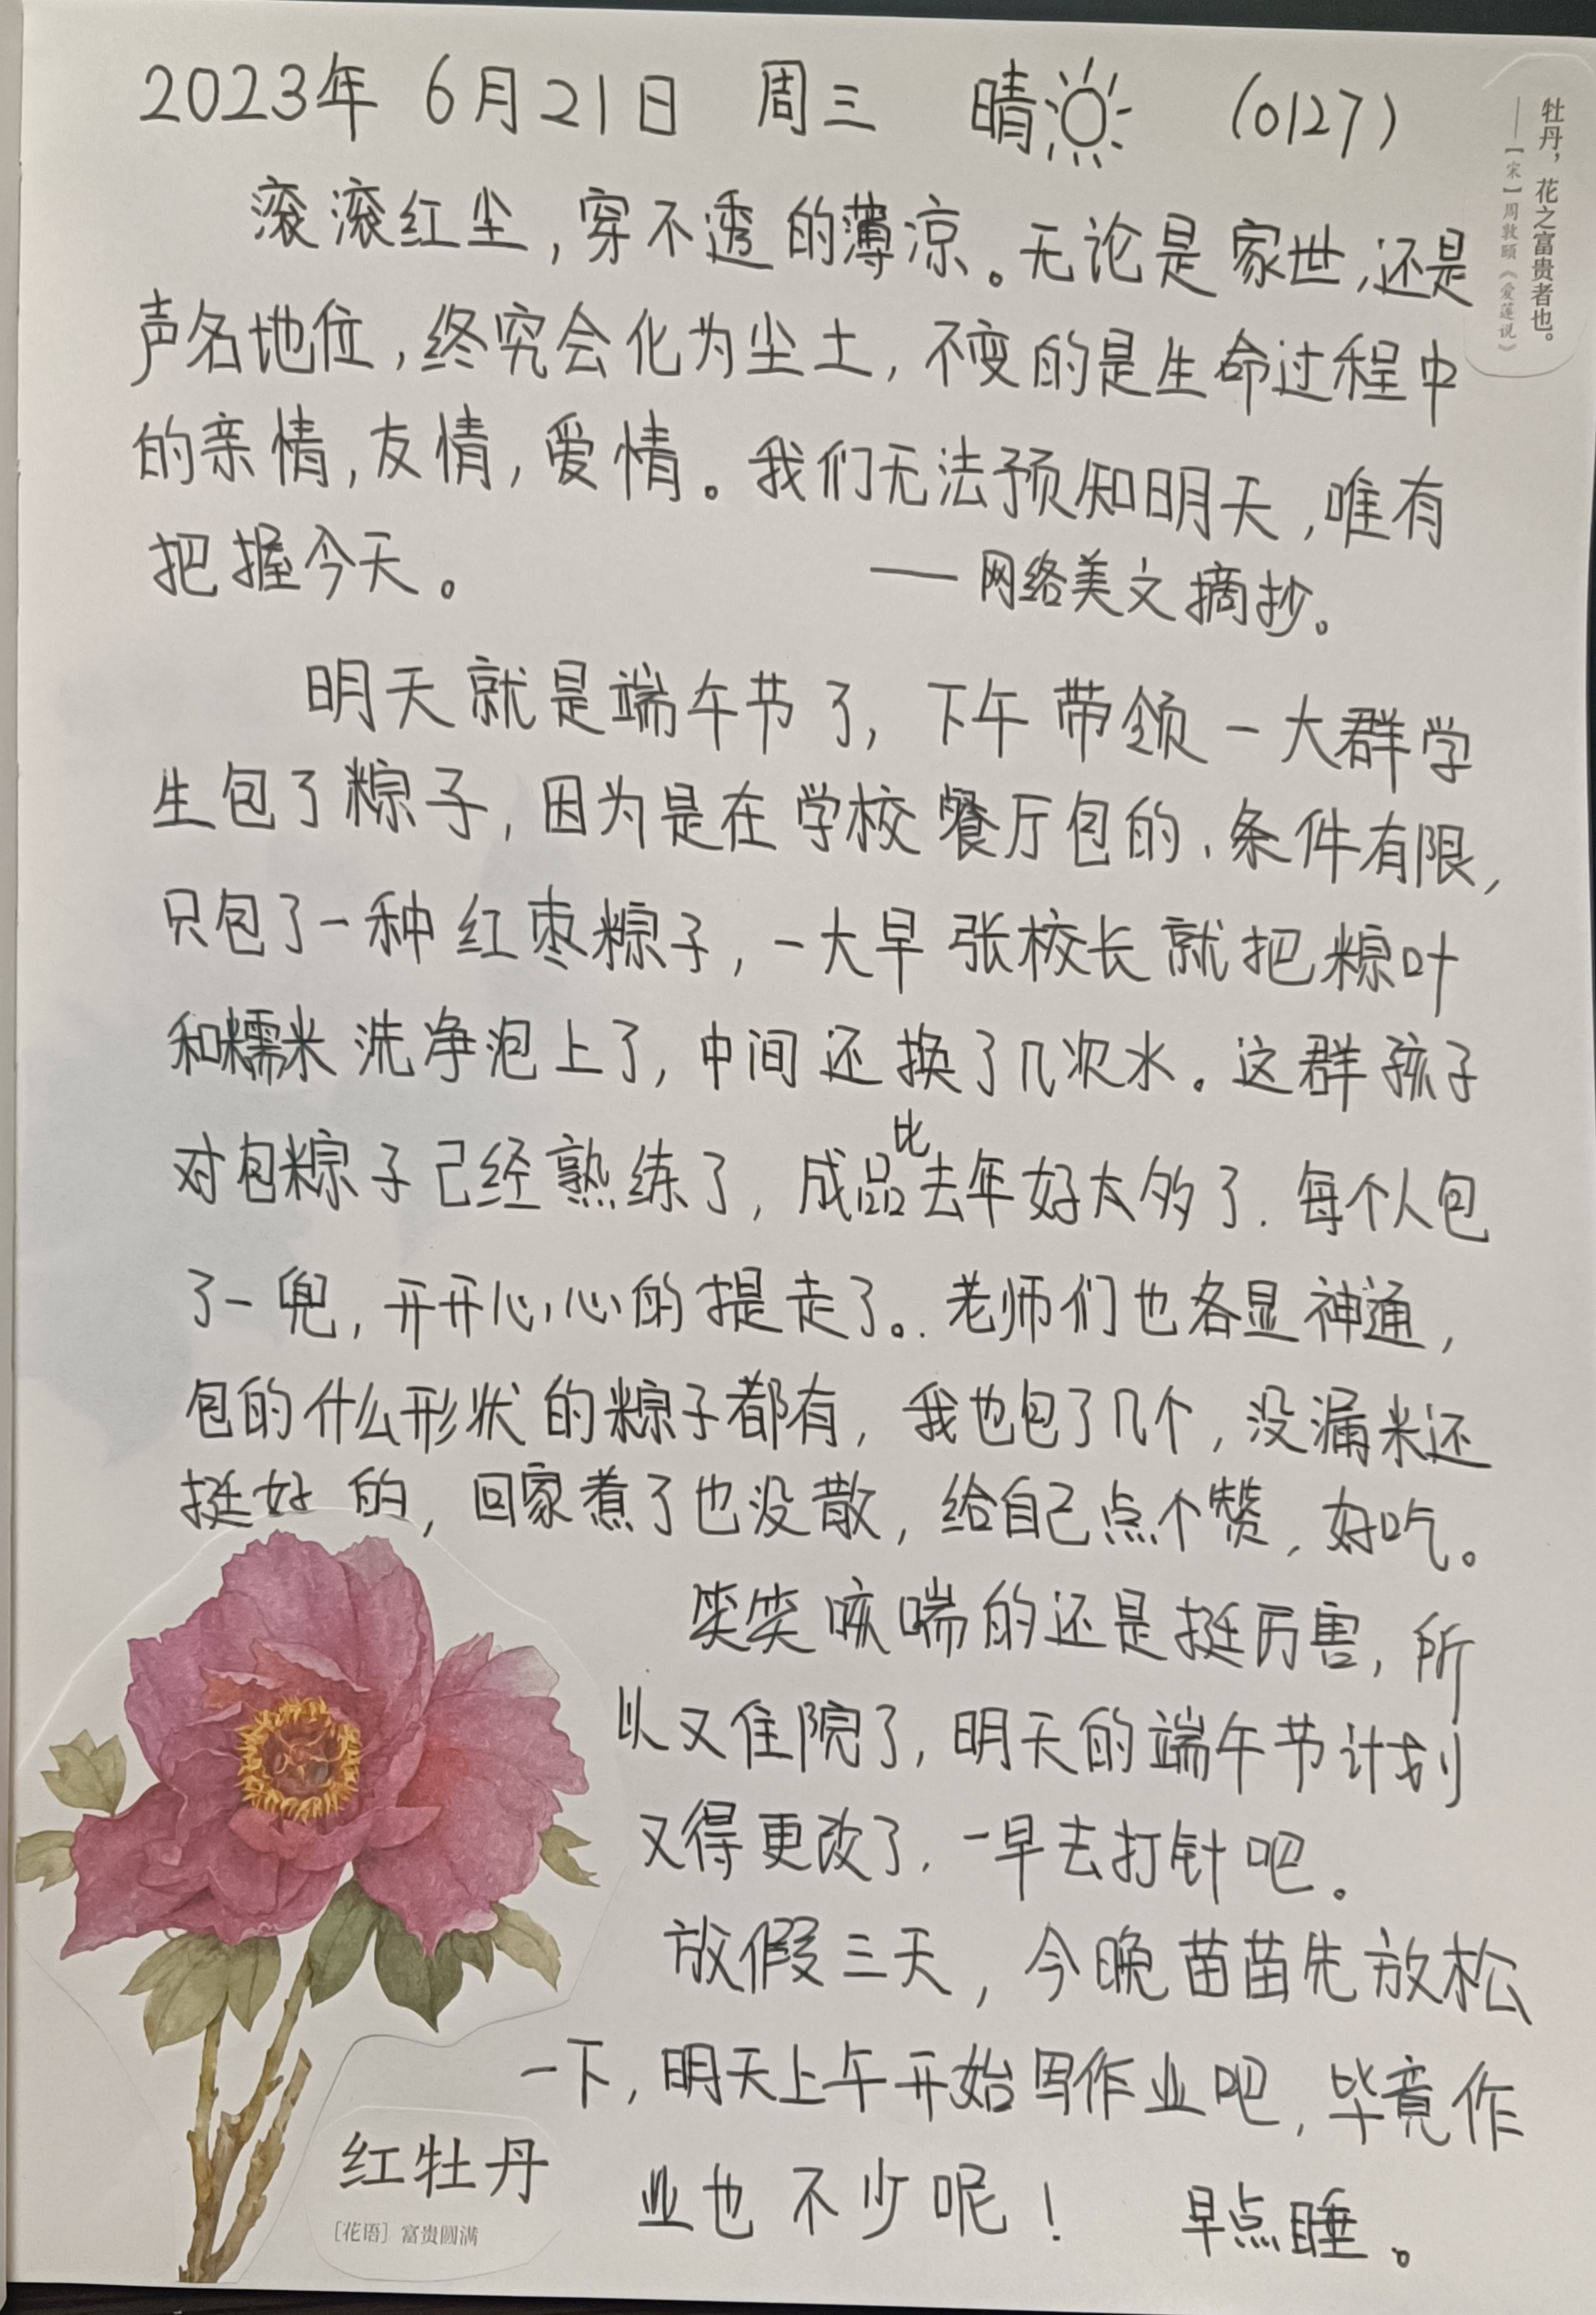 2023年 6月21日 周三 晴 (0127)
牡丹，花之富贵者也。
——【宋】周敦颐《爱莲说》
滚滚红尘，穿不透的薄凉。无论是家世，还是
声名地位，终究会化为尘土，不变的是生命过程中
的亲情，友情，爱情。我们无法预知明天，唯有
把握今天。 ——网络美文摘抄。
明天就是端午节了，下午带领一大群学
生包了粽子，因为是在学校餐厅包的、条件有限，
只包了一种红枣粽子，一大早张校长就把粽叶
和糯米洗净泡上了，中间还换了几次水。这群孩子
对包粽子已经熟练了，成品比去年好太多了．每个人包
了一兜，开开心心的提走了。．老师们也各显神通，
包的什么形状的粽子都有，我也包了几个，没漏米还
挺好的，回家煮了也没散，给自己点个赞，好吃。
笑笑咳喘的还是挺厉害，所
以又住院了，明天的端午节计划
又得更改了．一早去打针吧。
放假三天，今晚苗苗先放松
一下，明天上午开始写作业吧，毕竟作
业也不少呢！ 早点睡。
红牡丹
［花语］富贵圆满